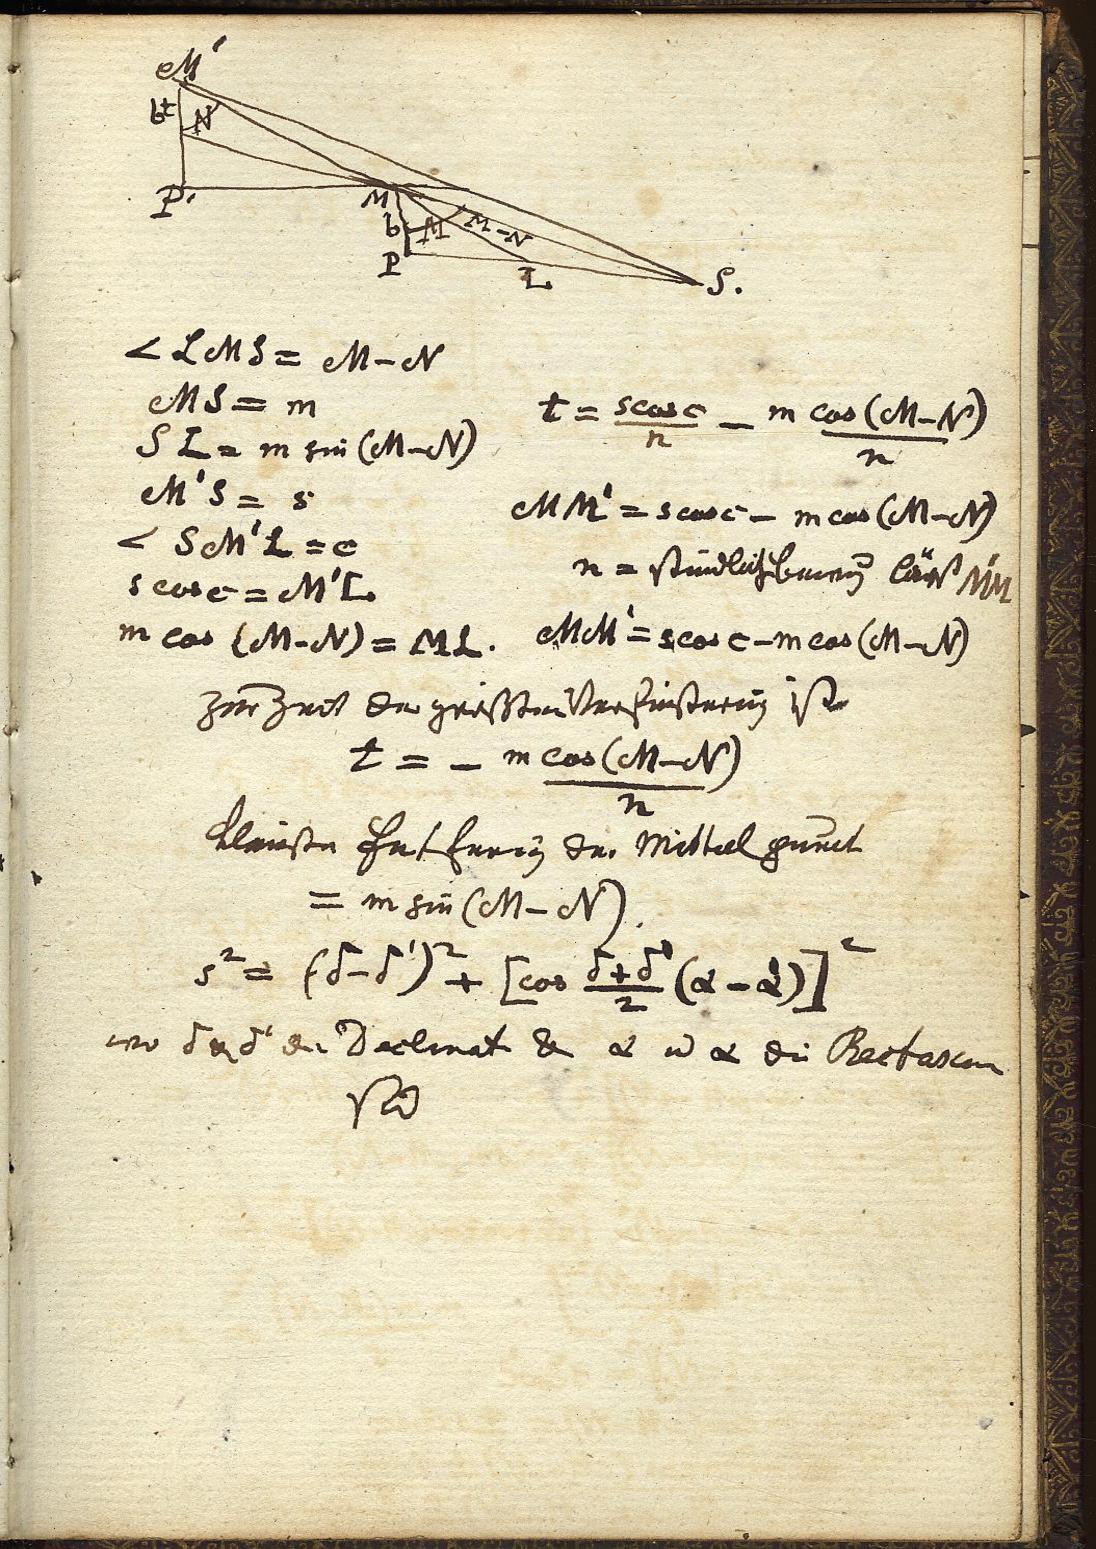 M'
bt N
P'
M
b M M-N
P
L
S.
< LMS = M-N
MS = m
SL = m sin (M-N)
M'S = s
< SM'L = c
s cos c = M'L
m cos (M-N) = ML.
t = s cos c / n - m cos (M-N) / n
MM' = s cos c - m cos (M-N)
n = stündliche Beweg Läng M'M
MM' = s cos c - m cos (M-N)
zur Zeit der größten Verfinsterung ist
t = - m cos (M-N) / n
kleinste Entfernung der Mittelpunct
= m sin (M-N).
s² = (δ-δ')² + [cos δ+δ'/2 (α-α')]²
wo δ & δ' die Declinat & α u α die Rectascen
sind